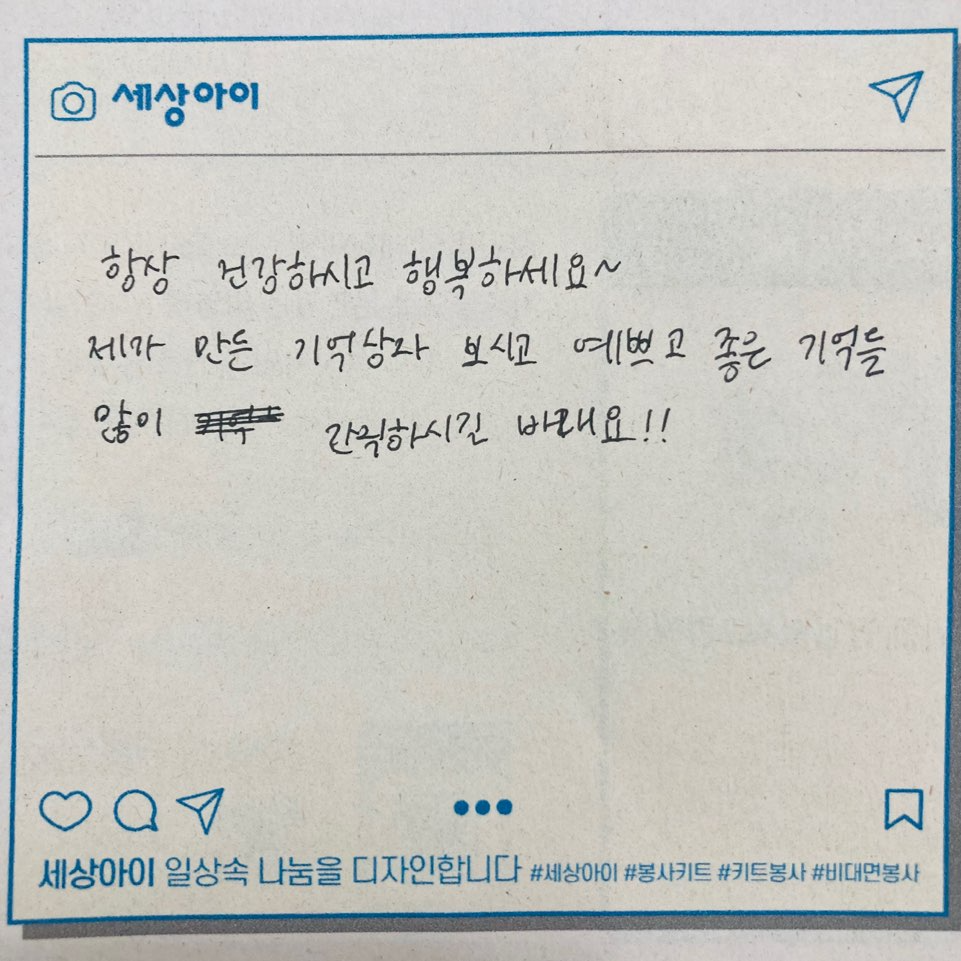 세상아이
항상 건강하시고 행복하세요~
제가 만든 기억상자 보시고 예쁘고 좋은 기억들
많이 간직하시길 바래요!!
세상아이 일상속 나눔을 디자인합니다 #세상아이 #봉사키트 #키트봉사 #비대면봉사